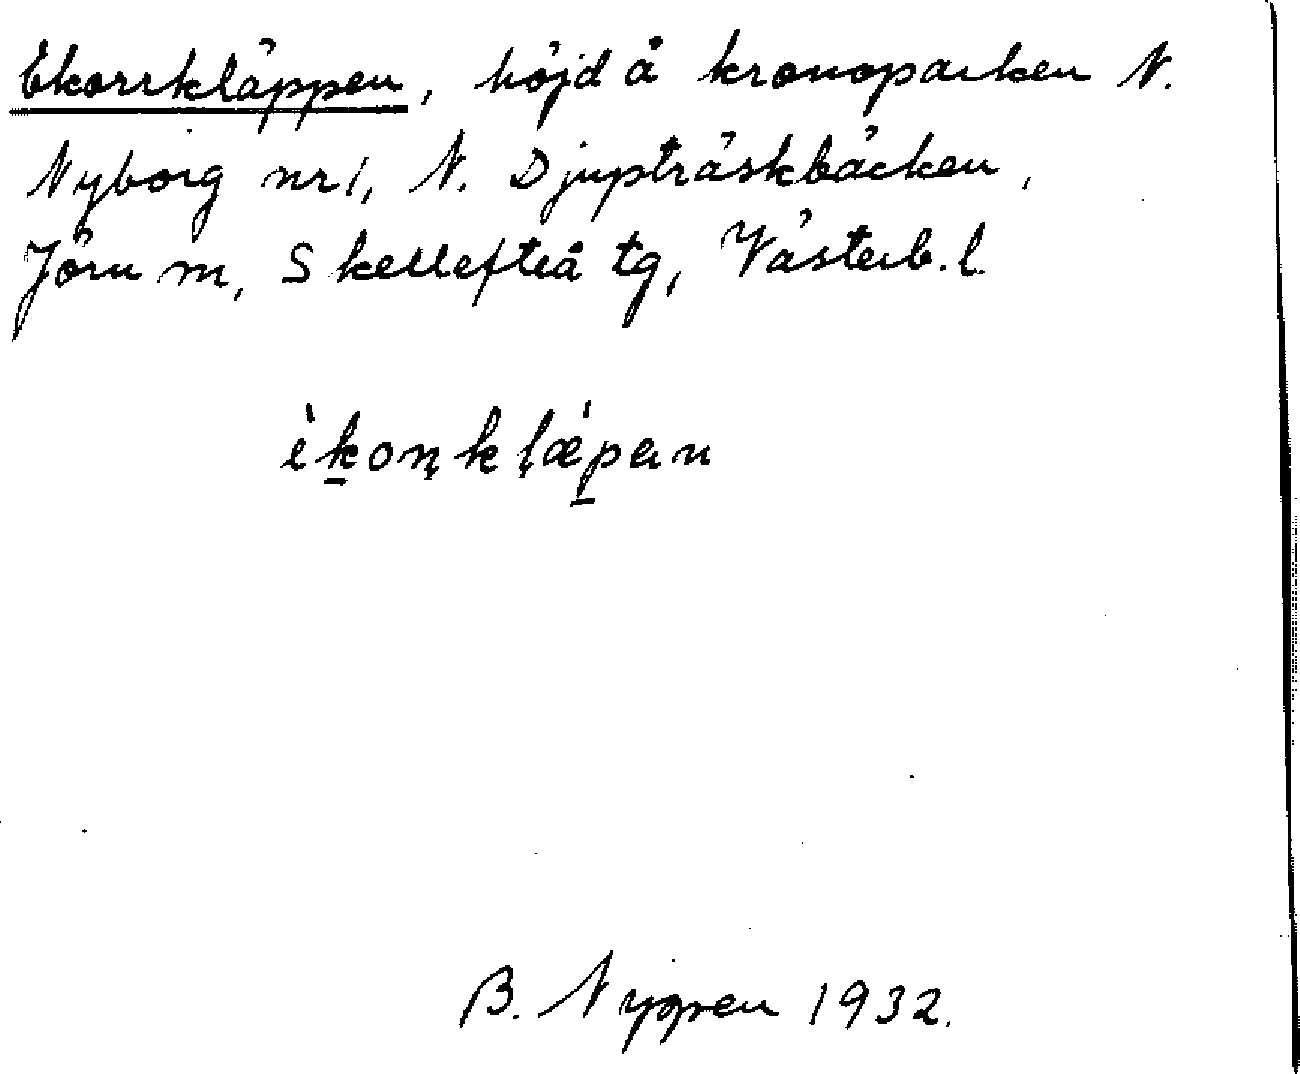 Ekorrkläppen, höjd å kronoparken N.
Nyborg nr 1, N. Djupträskbäcken,
Jörn m, Skellefteå tg, Västerb. l.
èkoṇkḷæ̀pen
B. Nygren 1932.